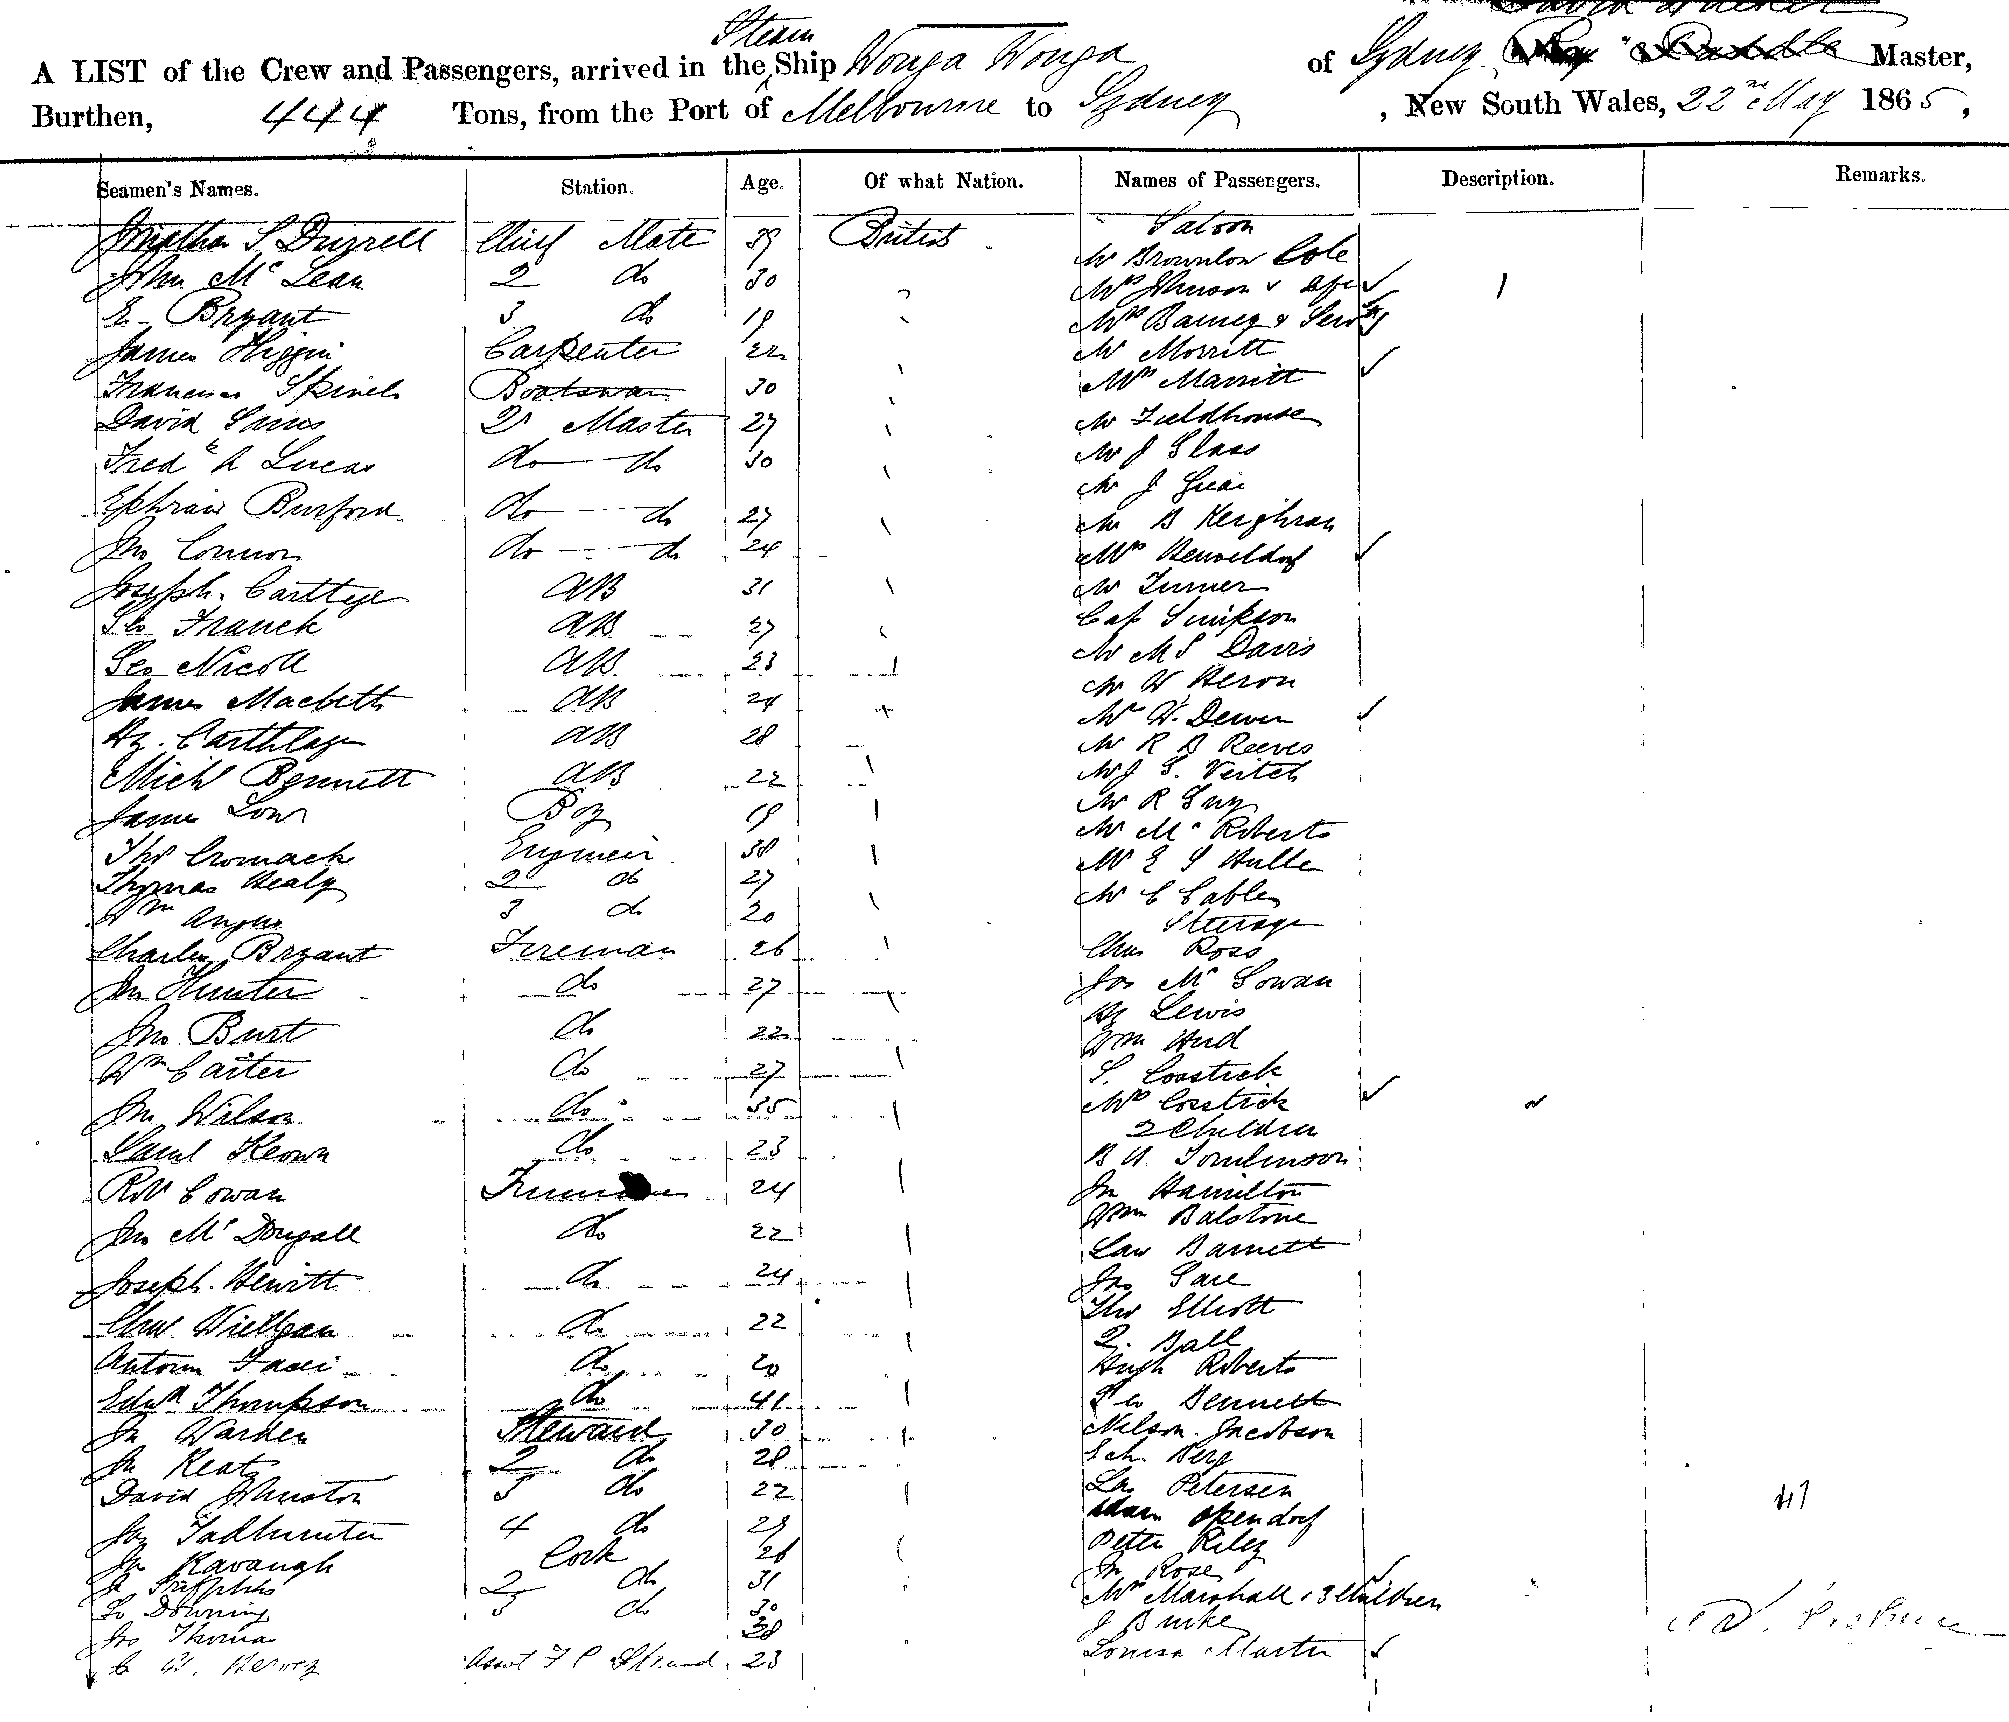 David Walker
Steam
A LIST of the Crew and Passengers, arrived in the Ship Wonga Wonga of Sydney Master,
Burthen, 444 Tons, from the Port of Melbourne to Sydney, New South Wales, 22nd May 1865,
Seamen's Names. Station. Age. Of what Nation. Names of Passengers. Description. Remarks.
Chief Mate 39 British Saloon
John Mc Lean 2 do 30 Mr Brownlow Cole
E. Bryant 3 do 19 Mrs Johnson &
James Higgin Carpenter 22 Mrs Barney & Servt
Boatswain 30 Mr Morritt
David 2r Master 27 Mrs Marritt
Fredk A Lucas do do 30 Mr Fieldhouse
Ephraim Burford do do 27 Mr J Glass
Jno Connor do do 24 Mr J
Joseph AB 31 Mr B Keighran
Geo Franck AB 27 Mrs
Geo Nicoll AB 23 Mr Turner
James Macbeth AB 24 Cap Simpson
Hy. AB 28 Mr M S Davis
Michl Bennett AB 22 Mr W Heron
James Low Boy 19 Mr W. Dewen
Thos Cromack Engineer 38 Mr R B Reeves
Thomas Healy 2 do 27 Mr J S. Veitch
Wm Angus 3 do 20 Mr R Guy
Charles Bryant Fireman 26 Mr Mc Roberts
Jno Hunter do 27 Mr E S Hulle
Jno Burt do 22 Mr C Cables
Wm Carter do 27 Steerage
Jno Wilson do 35 Chas Ross
Saml Keown do 23 Jos Mc Gowan
Robt Cowan Fireman 24 Hy Lewis
Jno Mc Dougall do 22 Wm Hird
Joseph Hewitt do 24 S. Cosstick
Chas do 22 Mrs Cosstick
do 20 2 Children
Edwd Thompson do 41 B A. Tomlinson
Jn Warden Steward 30 Jn Hamilton
Jn Keats 2 do 28 Wm Balstone
David Johnston 3 do 22 Law Barnett
Jos Tadhunter 4 do 29 Jno
Jn Kavanagh Cook 26 Thos Elliott
2 do 31 Ball
Geo Downing 3 do 30 Hugh Roberts
Jos Thomas 38 Geo Bennett
C W. Hervey Asst 23 Nelson Jacobson
Berg
Petersen
Peter Riley
Jn Rose
Mrs Marshall & 3 Children
J Burke
Louisa Martin
41